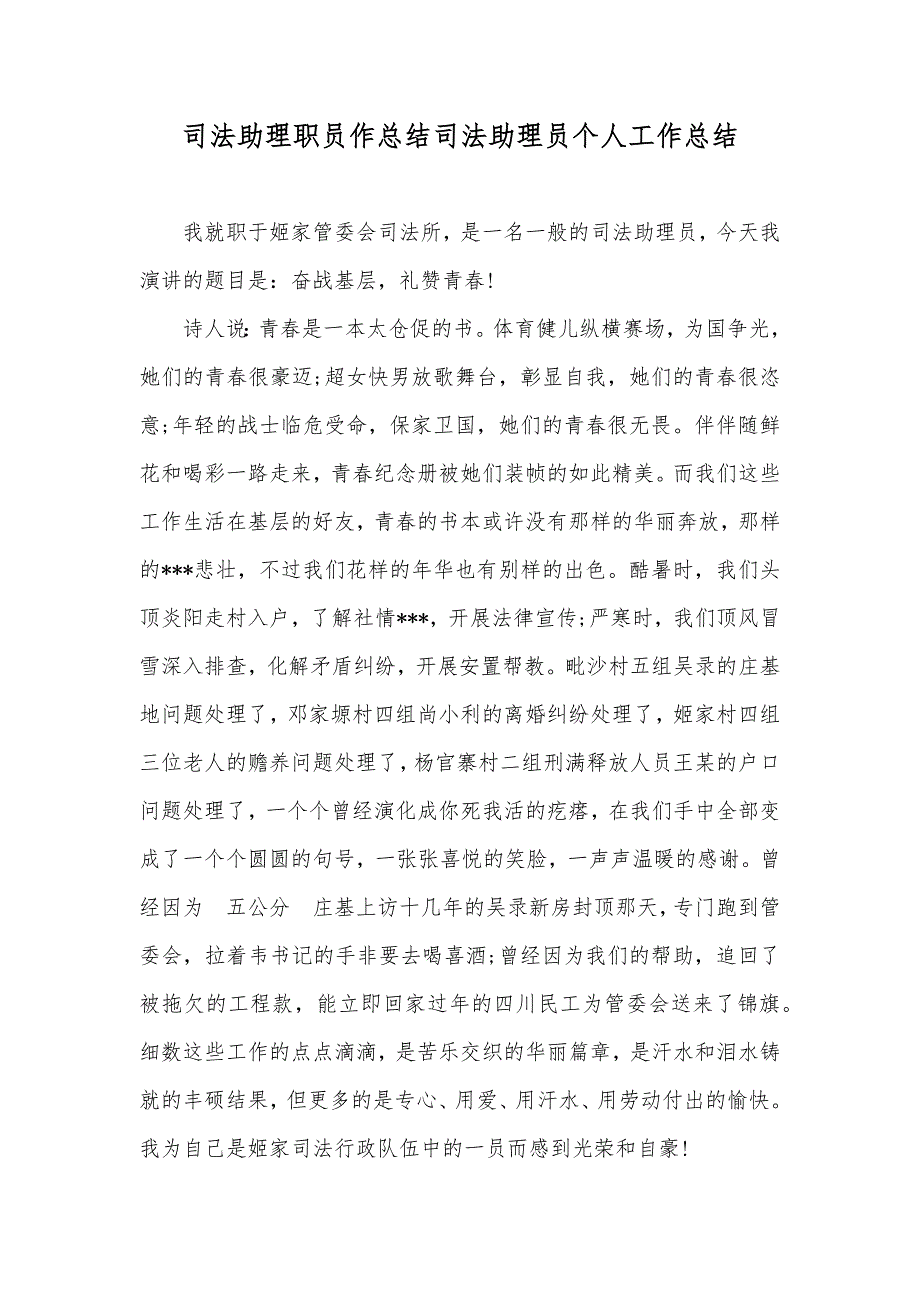 司法助理职员作总结司法助理员个人工作总结
我就职于姬家管委会司法所，是一名一般的司法助理员，今天我
演讲的题目是：奋战基层，礼赞青春!
诗人说：青春是一本太仓促的书。体育健儿纵横赛场，为国争光，
她们的青春很豪迈;超女快男放歌舞台，彰显自我，她们的青春很恣
意;年轻的战士临危受命，保家卫国，她们的青春很无畏。伴伴随鲜
花和喝彩一路走来，青春纪念册被她们装帧的如此精美。而我们这些
工作生活在基层的好友，青春的书本或许没有那样的华丽奔放，那样
的***悲壮，不过我们花样的年华也有别样的出色。酷暑时，我们头
顶炎阳走村入户，了解社情***，开展法律宣传;严寒时，我们顶风冒
雪深入排查，化解矛盾纠纷，开展安置帮教。毗沙村五组吴录的庄基
地问题处理了，邓家塬村四组尚小利的离婚纠纷处理了，姬家村四组
三位老人的赡养问题处理了，杨官寨村二组刑满释放人员王某的户口
问题处理了，一个个曾经演化成你死我活的疙瘩，在我们手中全部变
成了一个个圆圆的句号，一张张喜悦的笑脸，一声声温暖的感谢。曾
经因为　五公分　庄基上访十几年的吴录新房封顶那天，专门跑到管
委会，拉着韦书记的手非要去喝喜酒;曾经因为我们的帮助，追回了
被拖欠的工程款，能立即回家过年的四川民工为管委会送来了锦旗。
细数这些工作的点点滴滴，是苦乐交织的华丽篇章，是汗水和泪水铸
就的丰硕结果，但更多的是专心、用爱、用汗水、用劳动付出的愉快。
我为自己是姬家司法行政队伍中的一员而感到光荣和自豪!